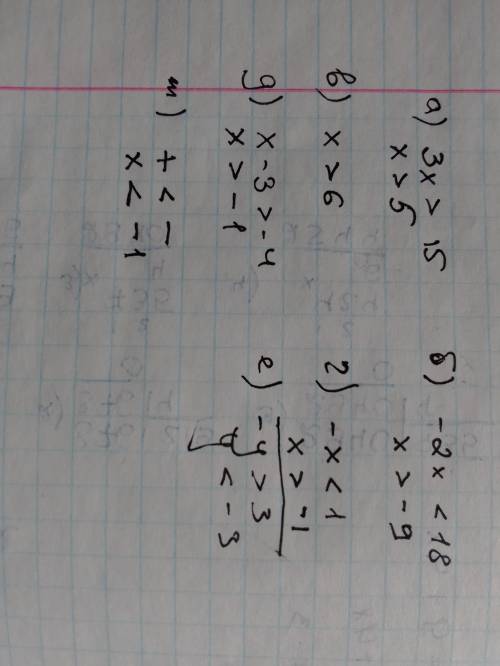 а) 3x > 15
x > 5
б) -2x < 18
x > -9
в) x > 6
г) -x < 1
x > -1
д) x - 3 > -4
x > -1
е) -y > 3
y < -3
т) + < -
x < -1